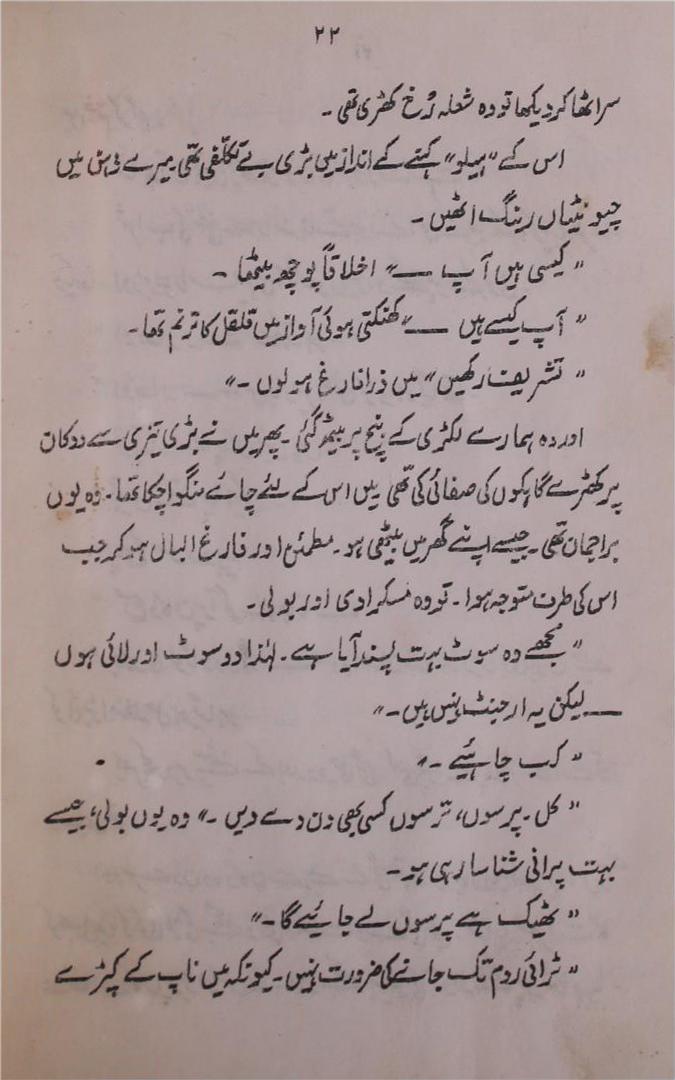 ۲۲
سر اٹھا کر دیکھا تو وہ شعلہ رُخ کھڑی تھی ۔
اس کے "ہیلو" کہنے کے انداز میں بڑی بے تکلفی تھی میرے ذہن میں
چیونٹیاں رینگ اٹھیں ۔
" کیسی ہیں آپ ــــ" اخلاقاً پوچھ بیٹھا ۔
" آپ کیسے ہیں ــــ" کھنکتی ہوئی آواز میں قلقل کا ترنم تھا ۔
" تشریف رکھیں" میں ذرا فارغ ہو لوں ۔"
اور وہ ہمارے لکڑی کے بنچ پر بیٹھ گئی ۔ پھر میں نے بڑی تیزی سے دوکان
پر کھڑے گاہکوں کی صفائی کی تھی میں اس کے لئے چائے منگوا چکا تھا ۔ وہ یوں
براجمان تھی ۔ جیسے اپنے گھر میں بیٹھی ہو ۔ مطمئن اور فارغ البال ہو کر جب
اس کی طرف متوجہ ہوا ۔ تو وہ مسکرا دی اور بولی ۔
" مجھے وہ سوٹ بہت پسند آیا ہے ۔ لہٰذا دو سوٹ اور لائی ہوں
ــــ لیکن یہ ارجنٹ نہیں ہیں ۔"
" کب چاہئیے ۔"
" کل ۔ پرسوں، ترسوں کسی بھی دن دے دیں ۔" وہ یوں بولی، جیسے
بہت پرانی شناسا رہی ہو ۔
" ٹھیک ہے پرسوں لے جائیے گا ۔"
" ٹرائی روم تک جانے کی ضرورت نہیں ۔ کیونکہ میں ناپ کے کپڑے